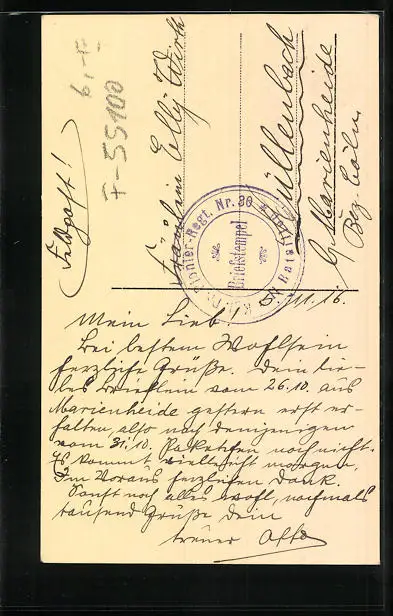 Feldpost!
6,-
F-55100
Fräulein Elly Wirth
Müllenbach
b/ Marienheide
Bez. Cöln
Pionier-Regt. Nr. 30
Briefstempel
11.16.
Mein Lieb!
Bei bestem Wohlsein
herzliche Grüße. Dein lie-
bes Brieflein vom 26.10. aus
Marienheide gestern erst er-
halten, also nach demjenigen
vom 31.10. Paketchen noch nicht.
Es kommt vielleicht morgen.
Im Voraus herzlichen Dank.
Sonst noch alles wohl, nochmals
tausend Grüße Dein
treuer Otto